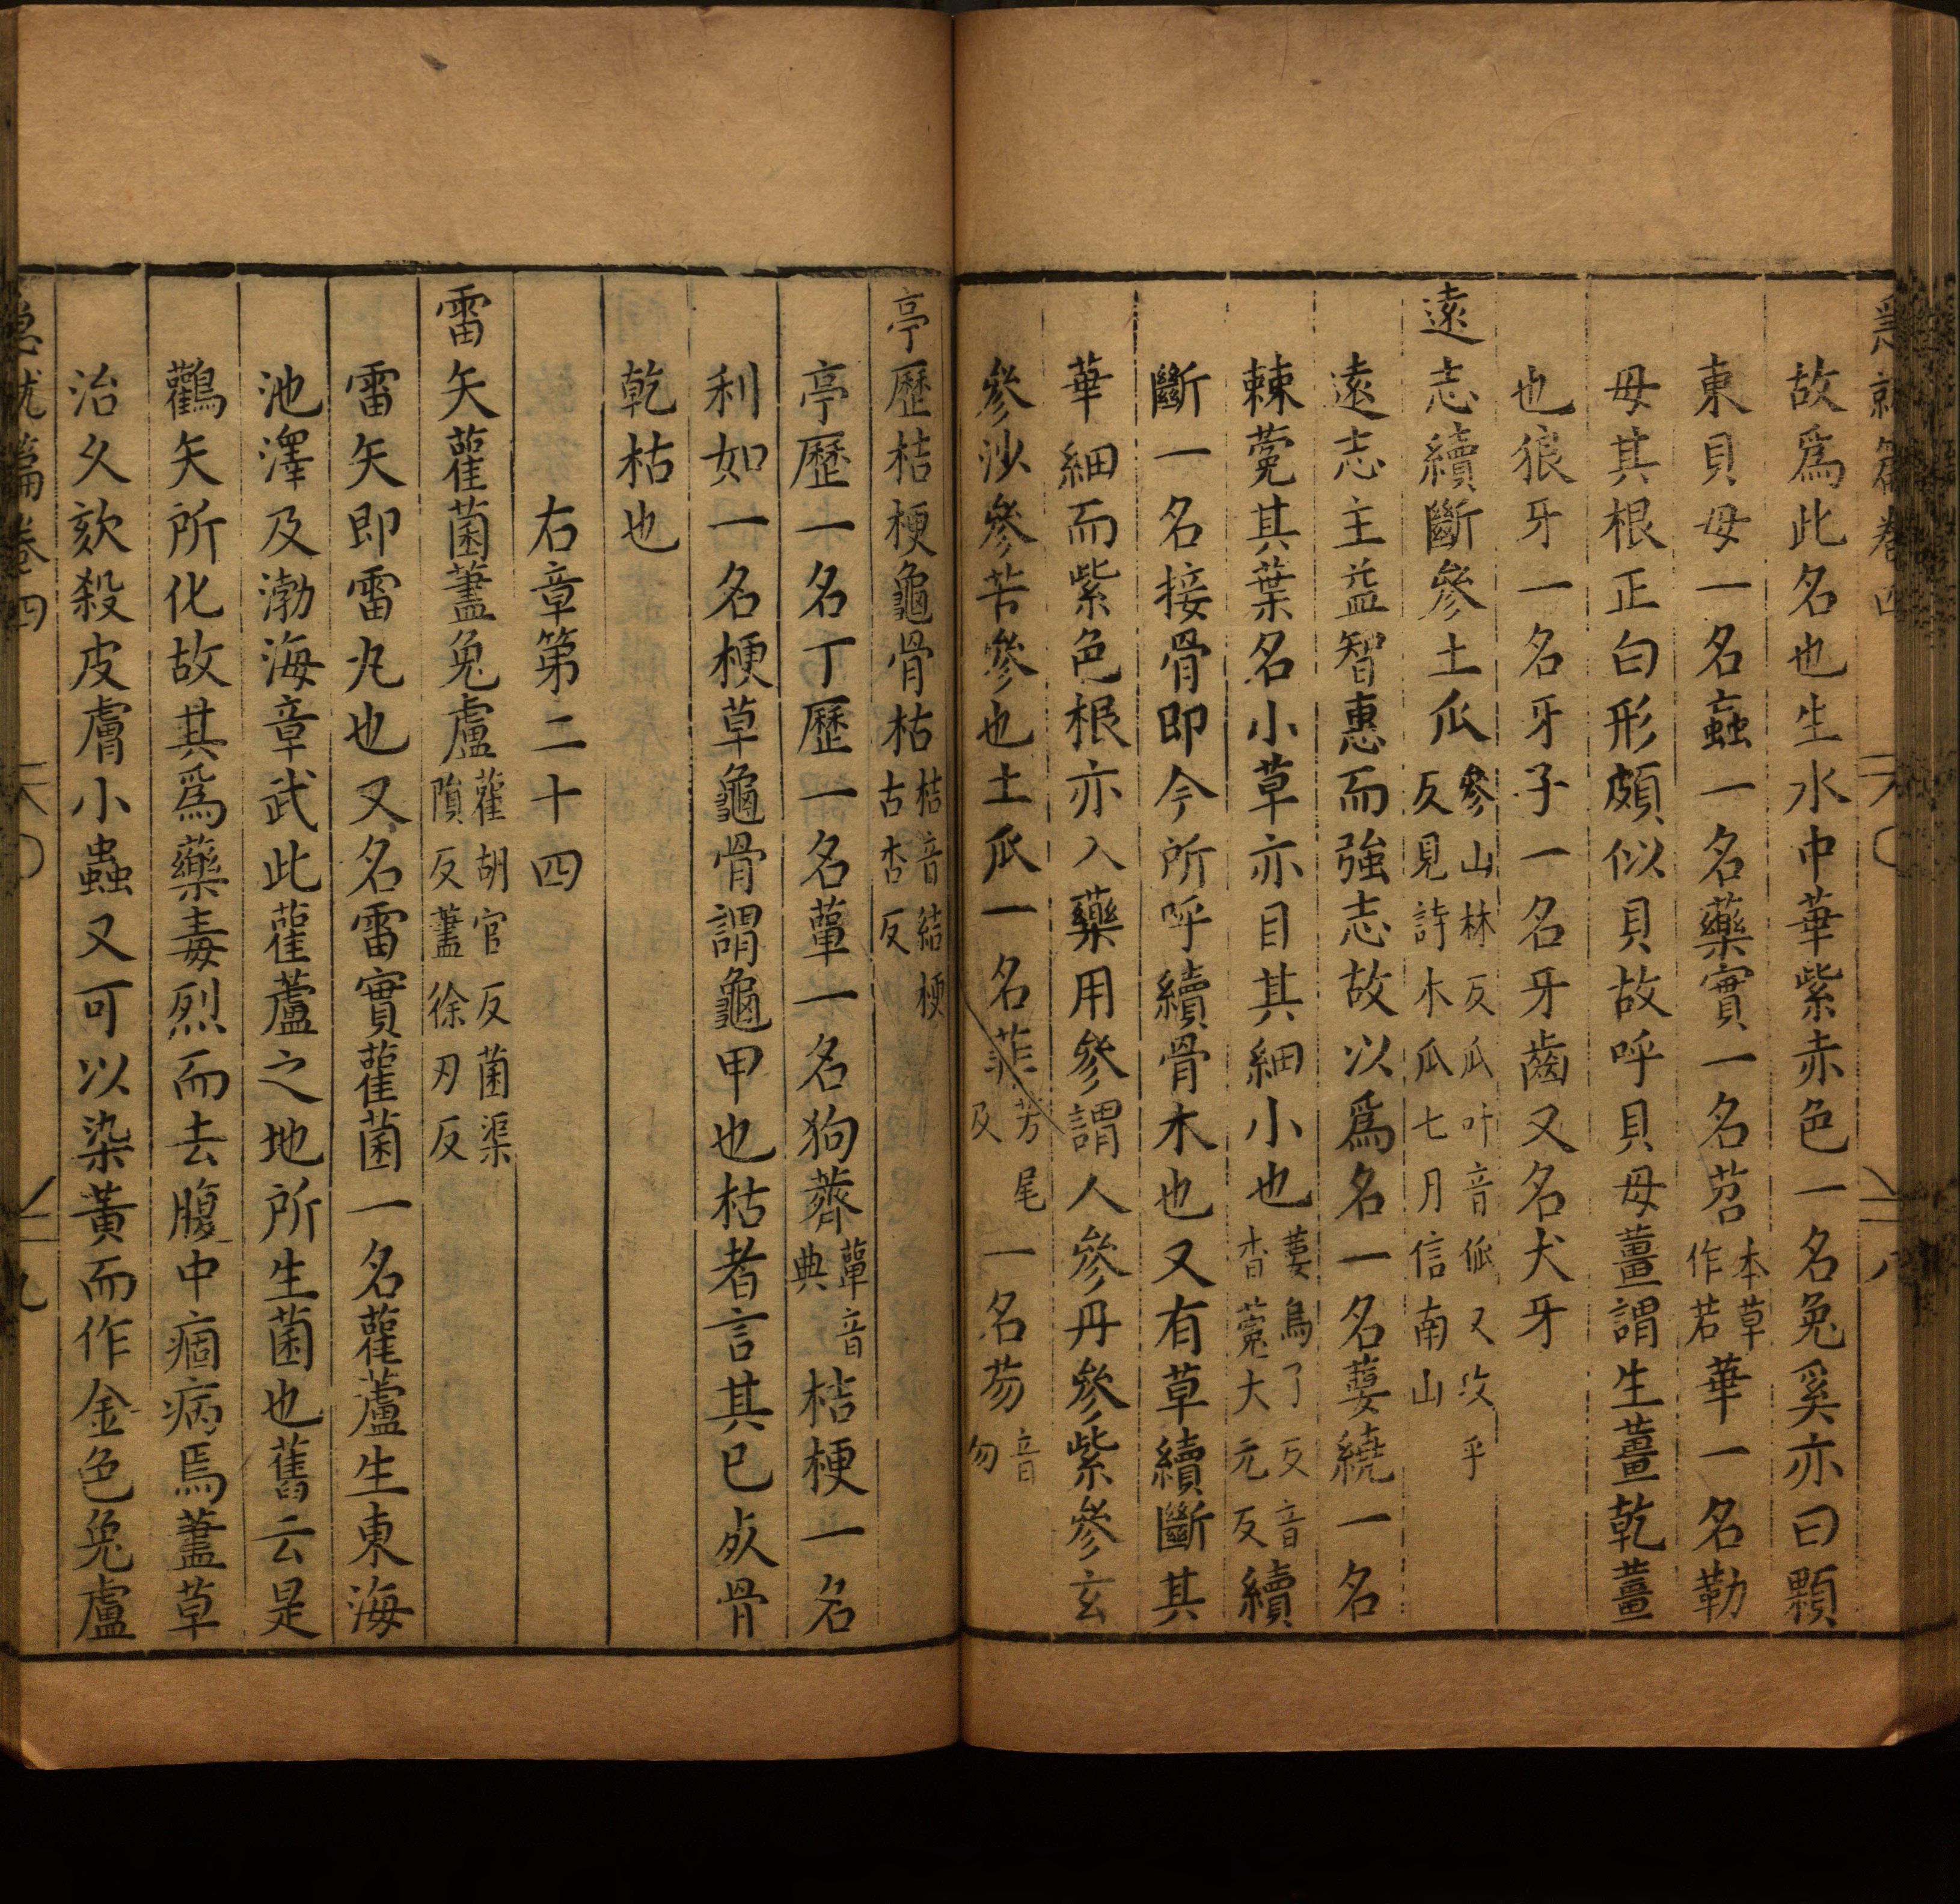 急就篇卷四
故為此名也生水中華紫赤色一名兔奚亦曰顆
東貝母一名蝱一名藥實一名苕本草作若華一名勒
母其根正白形頗似貝故呼貝母薑謂生薑乾薑
也狼牙一名牙子一名牙齒又名犬牙
遠志續斷參土瓜參山林反瓜叶音佤又攻乎反見詩木瓜七月信南山
遠志主益智惠而強志故以為名一名葽繞一名
棘菀其葉名小草亦目其細小也葽烏了反音杳菀大元反續
斷一名接骨即今所呼續骨木也又有草續斷其
華細而紫色根亦入藥用參謂人參丹參紫參玄
參沙參苦參也土瓜一名菲芳尾反一名芴音勿
亭歷桔梗龜骨枯桔音結梗古杏反
亭歷一名丁歷一名蕇一名狗薺蕇音典桔梗一名
利如一名梗草龜骨謂龜甲也枯者言其已炊骨
乾枯也
右章第二十四
雷矢雚菌藎兔盧雚胡官反菌渠隕反藎徐刃反
雷矢即雷丸也又名雷實雚菌一名雚蘆生東海
池澤及渤海章武此雚蘆之地所生菌也舊云是
鸛矢所化故其為藥毒烈而去腹中痼病焉藎草
治久欬殺皮膚小蟲又可以染黃而作金色兔盧
急就篇卷四